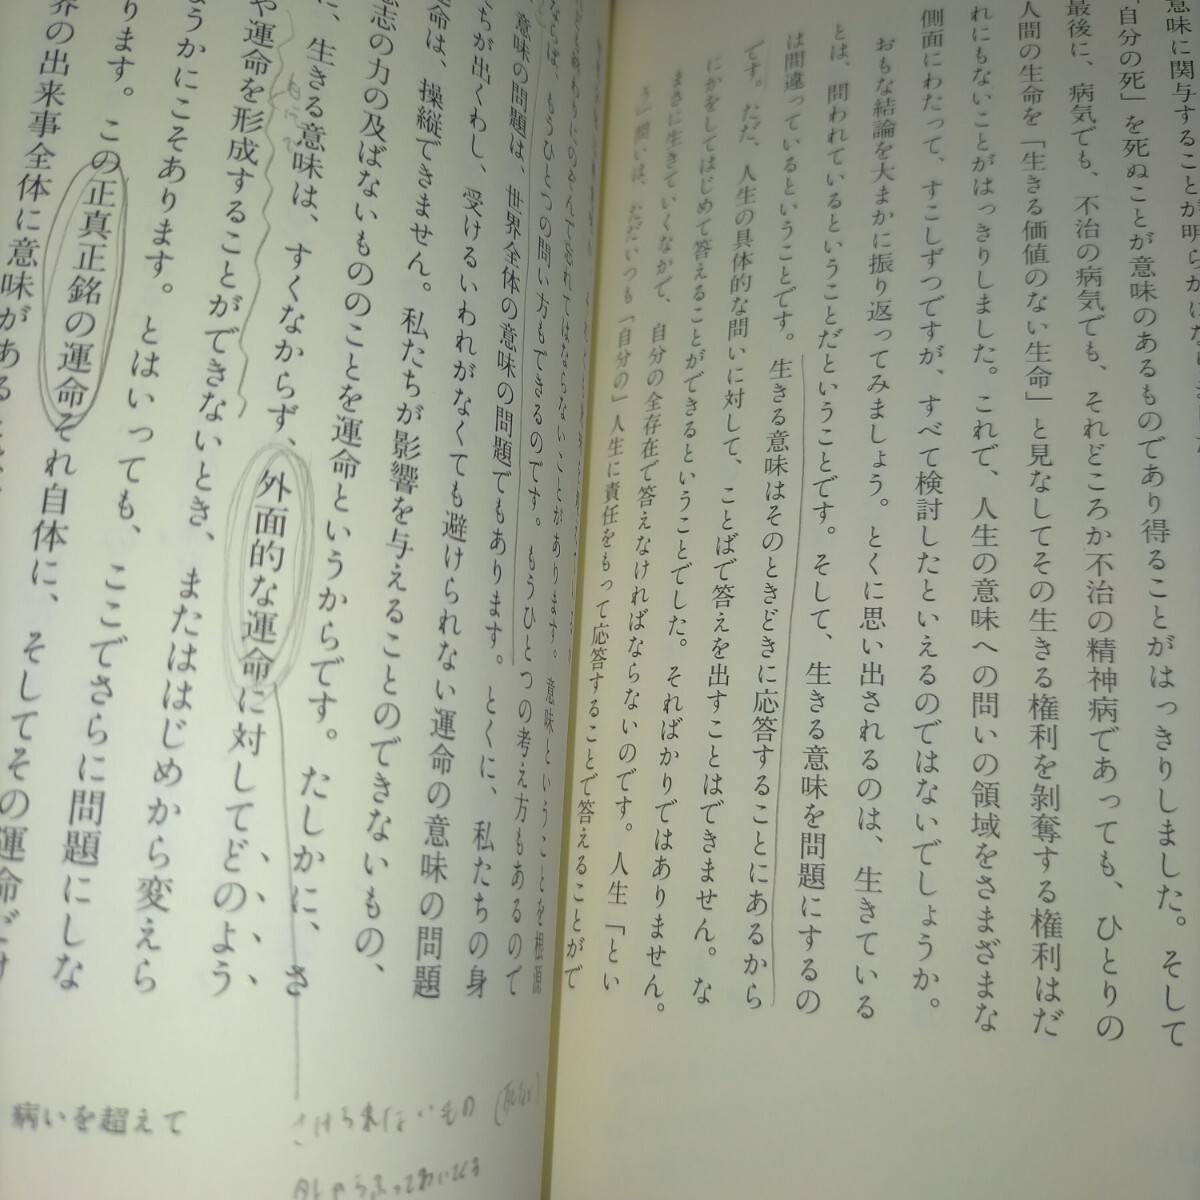 意味に関与することが明らかに
「自分の死」を死ぬことが意味のあるものであり得ることがはっきりしました。そして
最後に、病気でも、不治の病気でも、それどころか不治の精神病であっても、ひとりの
人間の生命を「生きる価値のない生命」と見なしてその生きる権利を剝奪する権利はだ
れにもないことがはっきりしました。これで、人生の意味への問いの領域をさまざまな
側面にわたって、すこしずつですが、すべて検討したといえるのではないでしょうか。
おもな結論を大まかに振り返ってみましょう。とくに思い出されるのは、生きている
とは、問われているということだということです。そして、生きる意味を問題にするの
は間違っているということです。生きる意味はそのときどきに応答することにあるから
です。ただ、人生の具体的な問いに対して、ことばで答えを出すことはできません。な
にかをしてはじめて答えることができるということでした。そればかりではありません。
まさに生きていくなかで、自分の全存在で答えなければならないのです。人生「とい
う」問いは、ただいつも「自分の」人生に責任をもって応答することで答えることがで
忘れてはならないことがあります。意味ということを根源
ならば、もうひとつの問い方もできるのです。もうひとつの考え方もあるので
意味の問題は、世界全体の意味の問題でもあります。とくに、私たちの身
ちが出くわし、受けるいわれがなくても避けられない運命の意味の問題
命は、操縦できません。私たちが影響を与えることのできないもの、
志の力の及ばないもののことを運命というからです。たしかに、さ
に、生きる意味は、すくなからず、外面的な運命に対してどのよう
や運命を形成することができないとき、またははじめから変えら
ようかにこそあります。とはいっても、ここでさらに問題にしな
ります。この正真正銘の運命それ自体に、そしてその運命だけ
界の出来事全体に意味がある
病いを超えて
さけられないもの